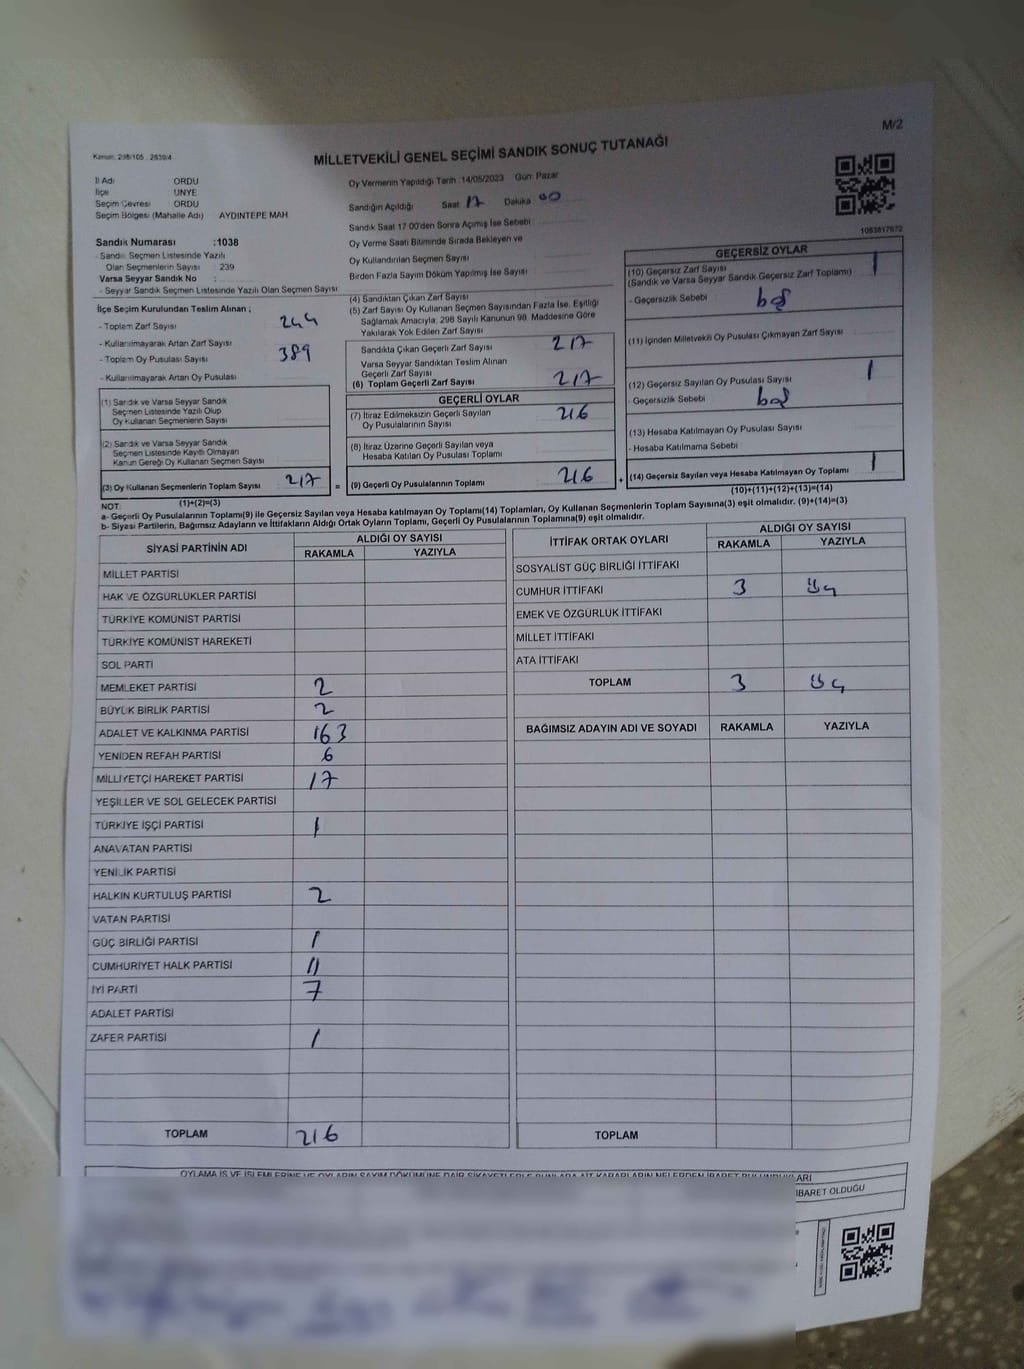 M/2
Kanun: 298/105 , 2839/4
MİLLETVEKİLİ GENEL SEÇİMİ SANDIK SONUÇ TUTANAĞI
İl Adı ORDU
İlçe ÜNYE
Seçim Çevresi ORDU
Seçim Bölgesi (Mahalle Adı) AYDINTEPE MAH
Sandık Numarası :1038
- Sandık Seçmen Listesinde Yazılı
Olan Seçmenlerin Sayısı : 239
Varsa Seyyar Sandık No :
- Seyyar Sandık Seçmen Listesinde Yazılı Olan Seçmen Sayısı
Oy Vermenin Yapıldığı Tarih :14/05/2023 Gün: Pazar
Sandığın Açıldığı Saat 17 Dakika 00
Sandık Saat 17:00'den Sonra Açılmış İse Sebebi :
Oy Verme Saati Bitiminde Sırada Bekleyen ve
Oy Kullandırılan Seçmen Sayısı
Birden Fazla Sayım Döküm Yapılmış İse Sayısı
1083817672
İlçe Seçim Kurulundan Teslim Alınan ;
- Toplam Zarf Sayısı 244
- Kullanılmayarak Artan Zarf Sayısı
- Toplam Oy Pusulası Sayısı 389
- Kullanılmayarak Artan Oy Pusulası
(1) Sandık ve Varsa Seyyar Sandık
Seçmen Listesinde Yazılı Olup
Oy Kullanan Seçmenlerin Sayısı
(2) Sandık ve Varsa Seyyar Sandık
Seçmen Listesinde Kayıtlı Olmayan
Kanun Gereği Oy Kullanan Seçmen Sayısı
(3) Oy Kullanan Seçmenlerin Toplam Sayısı 217
(1)+(2)=(3)
(4) Sandıktan Çıkan Zarf Sayısı
(5) Zarf Sayısı Oy Kullanan Seçmen Sayısından Fazla İse, Eşitliği
Sağlamak Amacıyla, 298 Sayılı Kanunun 98. Maddesine Göre
Yakılarak Yok Edilen Zarf Sayısı
Sandıkta Çıkan Geçerli Zarf Sayısı 217
Varsa Seyyar Sandıktan Teslim Alınan
Geçerli Zarf Sayısı
(6) Toplam Geçerli Zarf Sayısı 217
GEÇERLİ OYLAR
(7) İtiraz Edilmeksizin Geçerli Sayılan
Oy Pusulalarının Sayısı 216
(8) İtiraz Üzerine Geçerli Sayılan veya
Hesaba Katılan Oy Pusulası Toplamı
= (9) Geçerli Oy Pusulalarının Toplamı 216 +
GEÇERSİZ OYLAR
(10) Geçersiz Zarf Sayısı 1
(Sandık ve Varsa Seyyar Sandık Geçersiz Zarf Toplamı)
- Geçersizlik Sebebi boş
(11) İçinden Milletvekili Oy Pusulası Çıkmayan Zarf Sayısı
(12) Geçersiz Sayılan Oy Pusulası Sayısı 1
- Geçersizlik Sebebi boş
(13) Hesaba Katılmayan Oy Pusulası Sayısı
- Hesaba Katılmama Sebebi
(14) Geçersiz Sayılan veya Hesaba Katılmayan Oy Toplamı 1
(10)+(11)+(12)+(13)=(14)
NOT:
a- Geçerli Oy Pusulalarının Toplamı(9) ile Geçersiz Sayılan veya Hesaba katılmayan Oy Toplamı(14) Toplamları, Oy Kullanan Seçmenlerin Toplam Sayısına(3) eşit olmalıdır. (9)+(14)=(3)
b- Siyasi Partilerin, Bağımsız Adayların ve İttifakların Aldığı Ortak Oyların Toplamı, Geçerli Oy Pusulalarının Toplamına(9) eşit olmalıdır.
SİYASİ PARTİNİN ADI ALDIĞI OY SAYISI
RAKAMLA YAZIYLA
MİLLET PARTİSİ
HAK VE ÖZGÜRLÜKLER PARTİSİ
TÜRKİYE KOMÜNİST PARTİSİ
TÜRKİYE KOMÜNİST HAREKETİ
SOL PARTİ
MEMLEKET PARTİSİ 2
BÜYÜK BİRLİK PARTİSİ 2
ADALET VE KALKINMA PARTİSİ 163
YENİDEN REFAH PARTİSİ 6
MİLLİYETÇİ HAREKET PARTİSİ 17
YEŞİLLER VE SOL GELECEK PARTİSİ
TÜRKİYE İŞÇİ PARTİSİ 1
ANAVATAN PARTİSİ
YENİLİK PARTİSİ
HALKIN KURTULUŞ PARTİSİ 2
VATAN PARTİSİ
GÜÇ BİRLİĞİ PARTİSİ 1
CUMHURİYET HALK PARTİSİ 11
İYİ PARTİ 7
ADALET PARTİSİ
ZAFER PARTİSİ 1
TOPLAM 216
İTTİFAK ORTAK OYLARI ALDIĞI OY SAYISI
RAKAMLA YAZIYLA
SOSYALİST GÜÇ BİRLİĞİ İTTİFAKI
CUMHUR İTTİFAKI 3 Üç
EMEK VE ÖZGÜRLÜK İTTİFAKI
MİLLET İTTİFAKI
ATA İTTİFAKI
TOPLAM 3 Üç
BAĞIMSIZ ADAYIN ADI VE SOYADI RAKAMLA YAZIYLA
TOPLAM
OYLAMA İŞ VE İŞLEMLERİNE VE OYLARIN SAYIM DÖKÜMÜNE DAİR ŞİKAYETLERLE BUNLARA AİT KARARLARIN NELERDEN İBARET BULUNDUKLARI
İBARET OLDUĞU